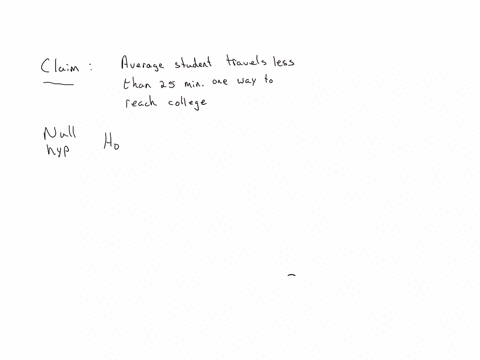 Claim : Average student travels less
than 25 min. one way to
reach college
Null
hyp H₀